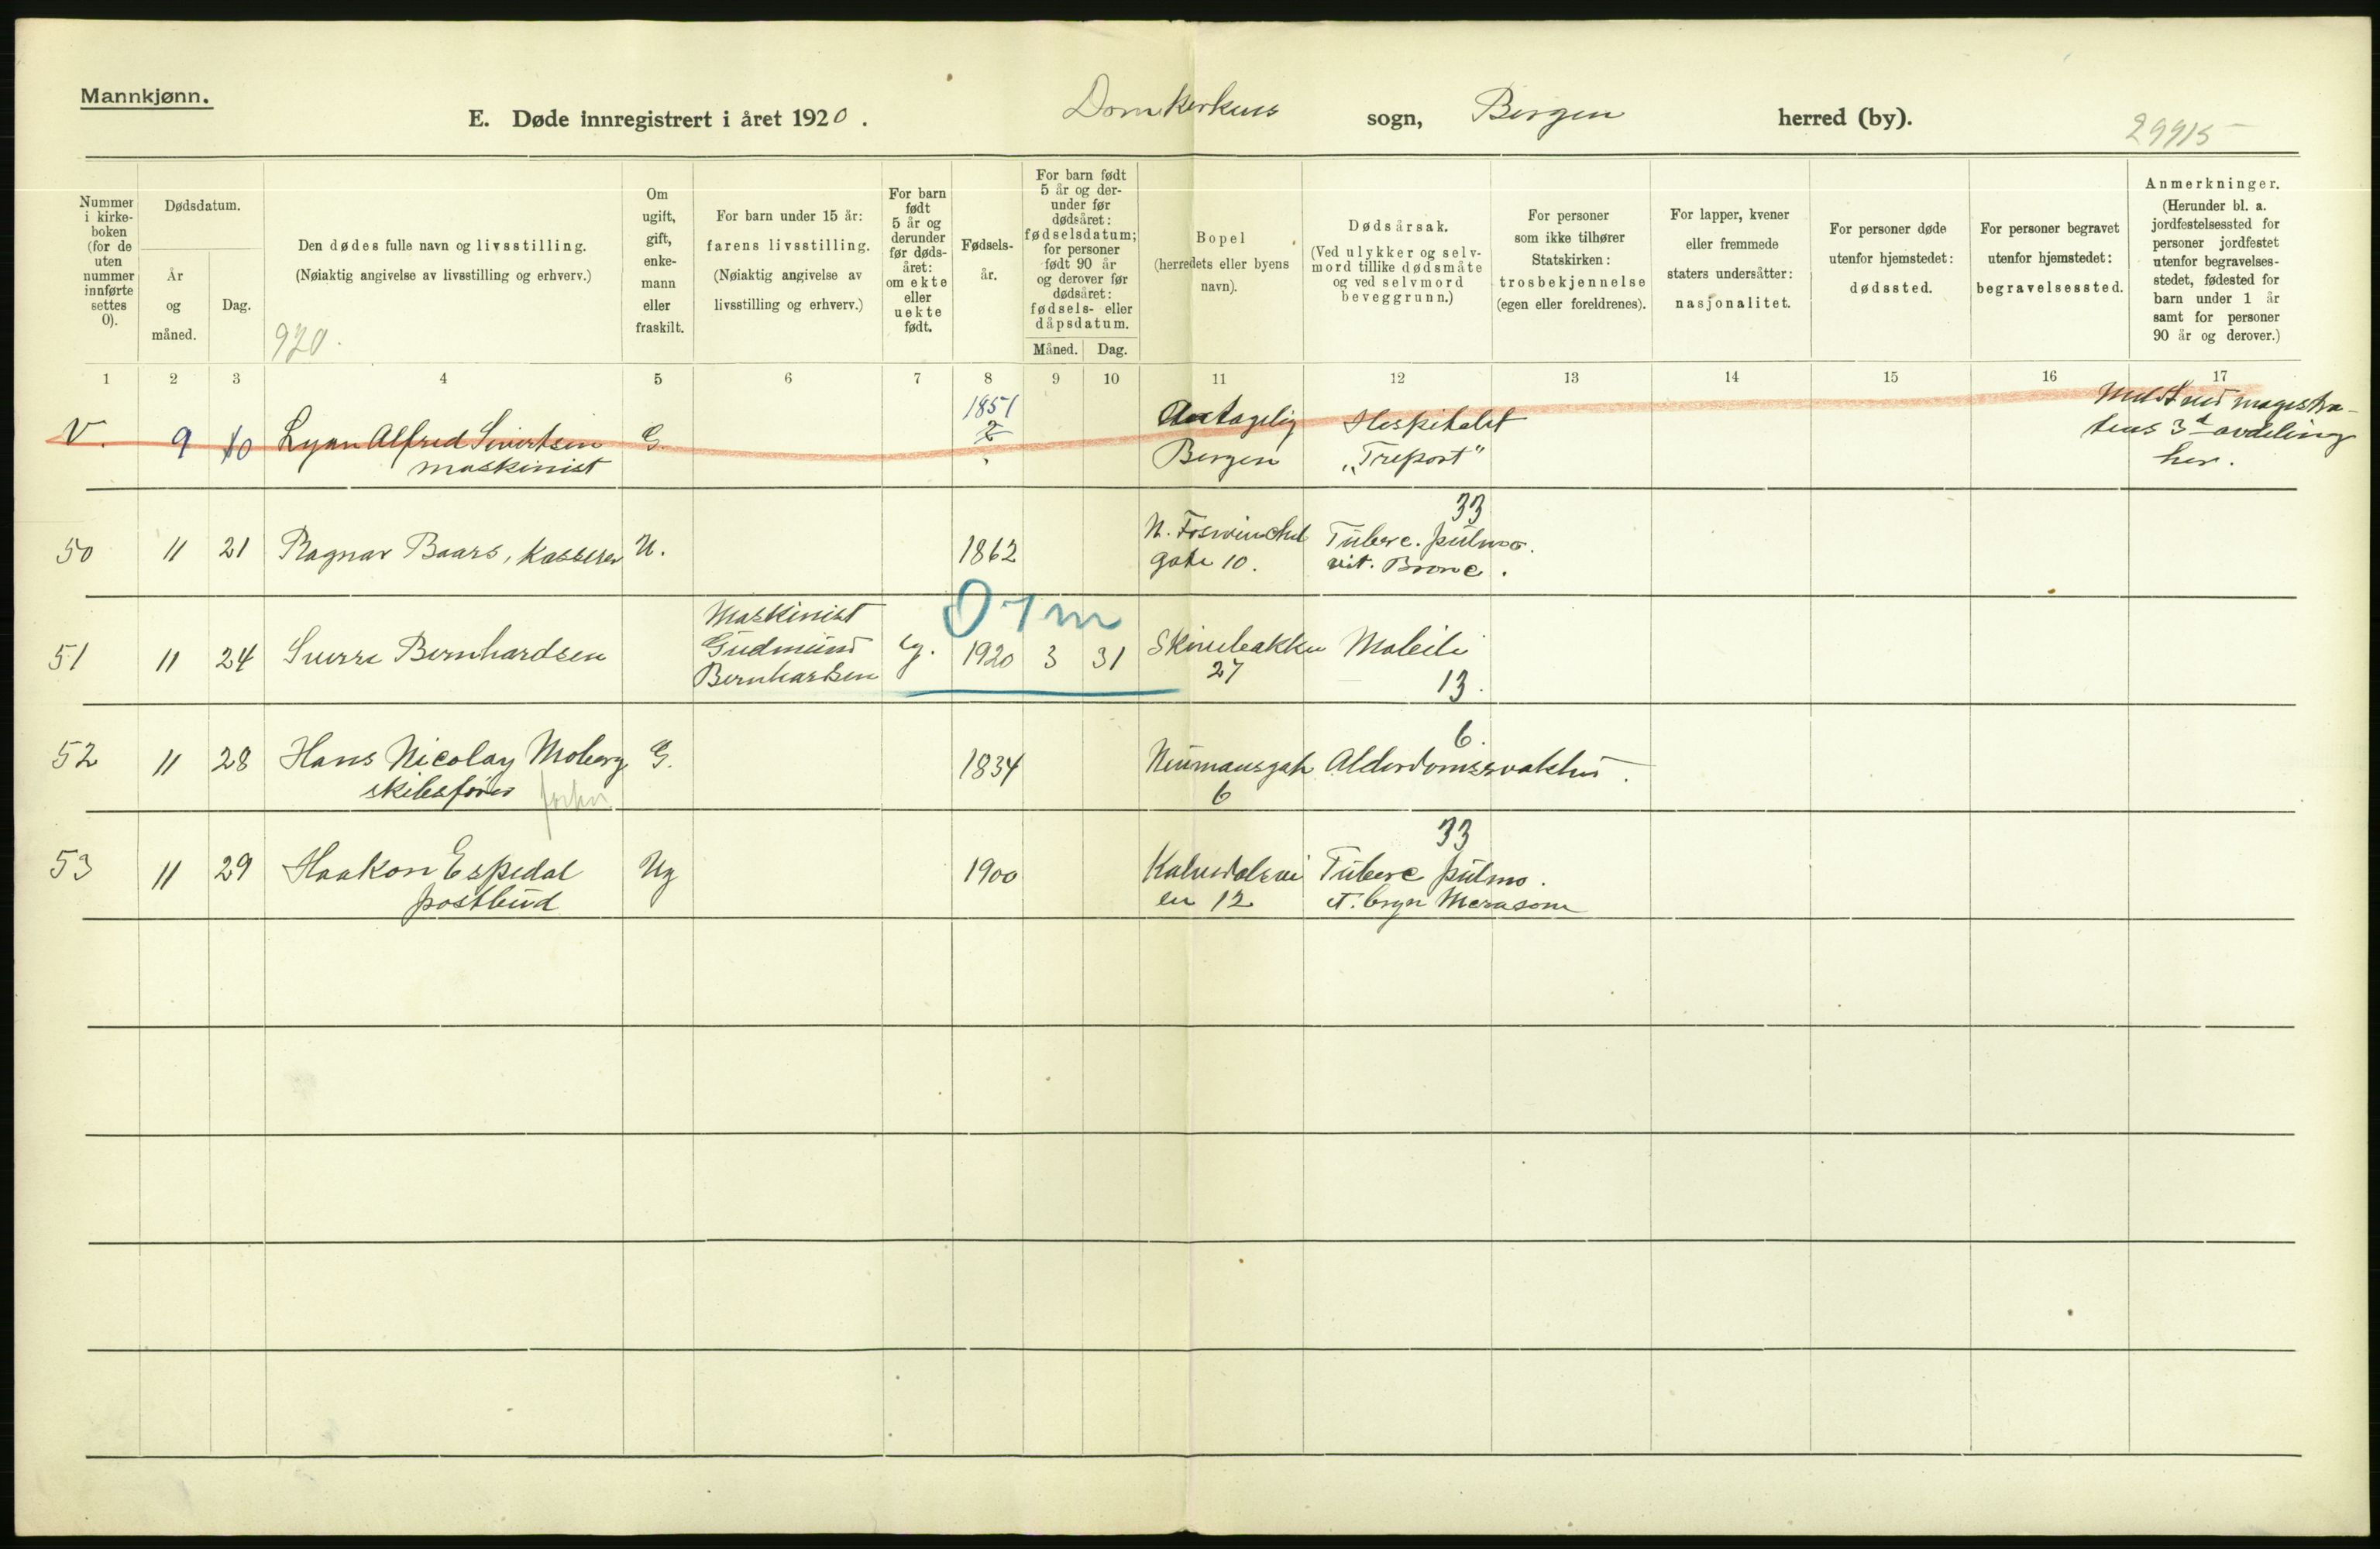 Mannkjønn.
E. Døde innregistrert i året 1920.
Domkirkens sogn, Bergen herred (by).
29915
Nummer i kirke-boken (for de uten nummer innførte settes 0).
Dødsdatum.
År og måned.
Dag.
Den dødes fulle navn og livsstilling.
(Nøiaktig angivelse av livsstilling og erhverv.)
920.
Om ugift, gift, enke-mann eller fraskilt.
For barn under 15 år:
farens livsstilling.
(Nøiaktig angivelse av livsstilling og erhverv.)
For barn født 5 år og derunder før døds-året: om ekte eller uekte født.
Fødsels-år.
For barn født 5 år og der-under før dødsåret: fødselsdatum; for personer født 90 år og derover før dødsåret: fødsels- eller dåpsdatum.
Måned. Dag.
Bopel
(herredets eller byens navn).
Dødsårsak.
(Ved ulykker og selv-mord tillike dødsmåte og ved selvmord beveggrunn.)
For personer som ikke tilhører Statskirken: trosbekjennelse (egen eller foreldrenes).
For lapper, kvener eller fremmede staters undersåtter: nasjonalitet.
For personer døde utenfor hjemstedet: dødssted.
For personer begravet utenfor hjemstedet: begravelsessted.
Anmerkninger.
(Herunder bl. a. jordfestelsessted for personer jordfestet utenfor begravelses-stedet, fødested for barn under 1 år samt for personer 90 år og derover.)
1 2 3 4 5 6 7 8 9 10 11 12 13 14 15 16 17
V. 9 10 Lynn Alfred Sivertsen G. 1851 Antagelig Hospitalet Meldt ved magistra-
maskinist Bergen „Treport" tens 3d avdeling
her.
33
50 11 21 Ragnar Baars, Kasserer U. 1862 Tuberc. pulmo.
gate 10.
0-1 m
Maskinist
51 11 24 Sverre Bernhardsen Gudmund eg. 1920 3 31 Skivebakken
Bernhardsen 27
13.
6.
52 11 28 Hans Nicolay Moberg G. 1834 Neumansgate Alderdomssvakhet.
skibsfører 6
33
53 11 29 Haakon Espedal Ug 1900 Kalvedalsvei Tuberc pulmo.
postbud en 12